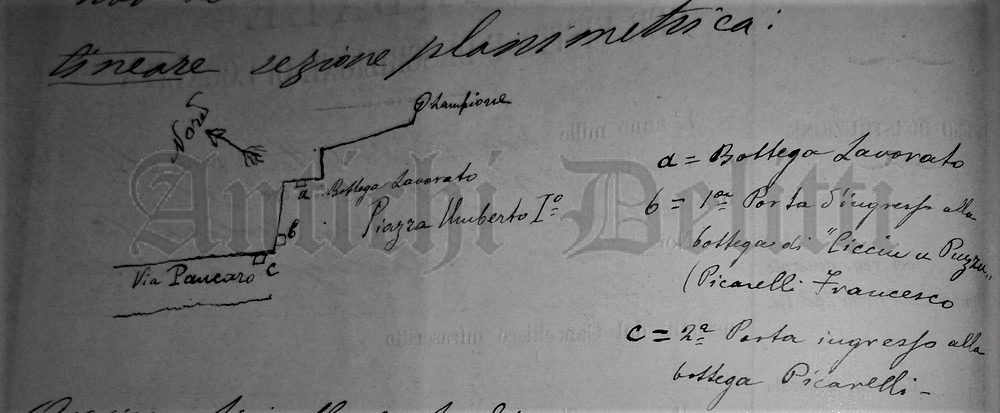 tineare sezione planimetrica:
Nord
Lampione
a
Bottega Lavorato
Piazza Umberto Iº
b
c
Via Pancaro
a = Bottega Lavorato
b = 1ª Porta d'ingresso alla
bottega di "Ciccu u Puzzu"
(Picarelli Francesco
c = 2ª Porta ingresso alla
bottega Picarelli -
Antichi Delitti